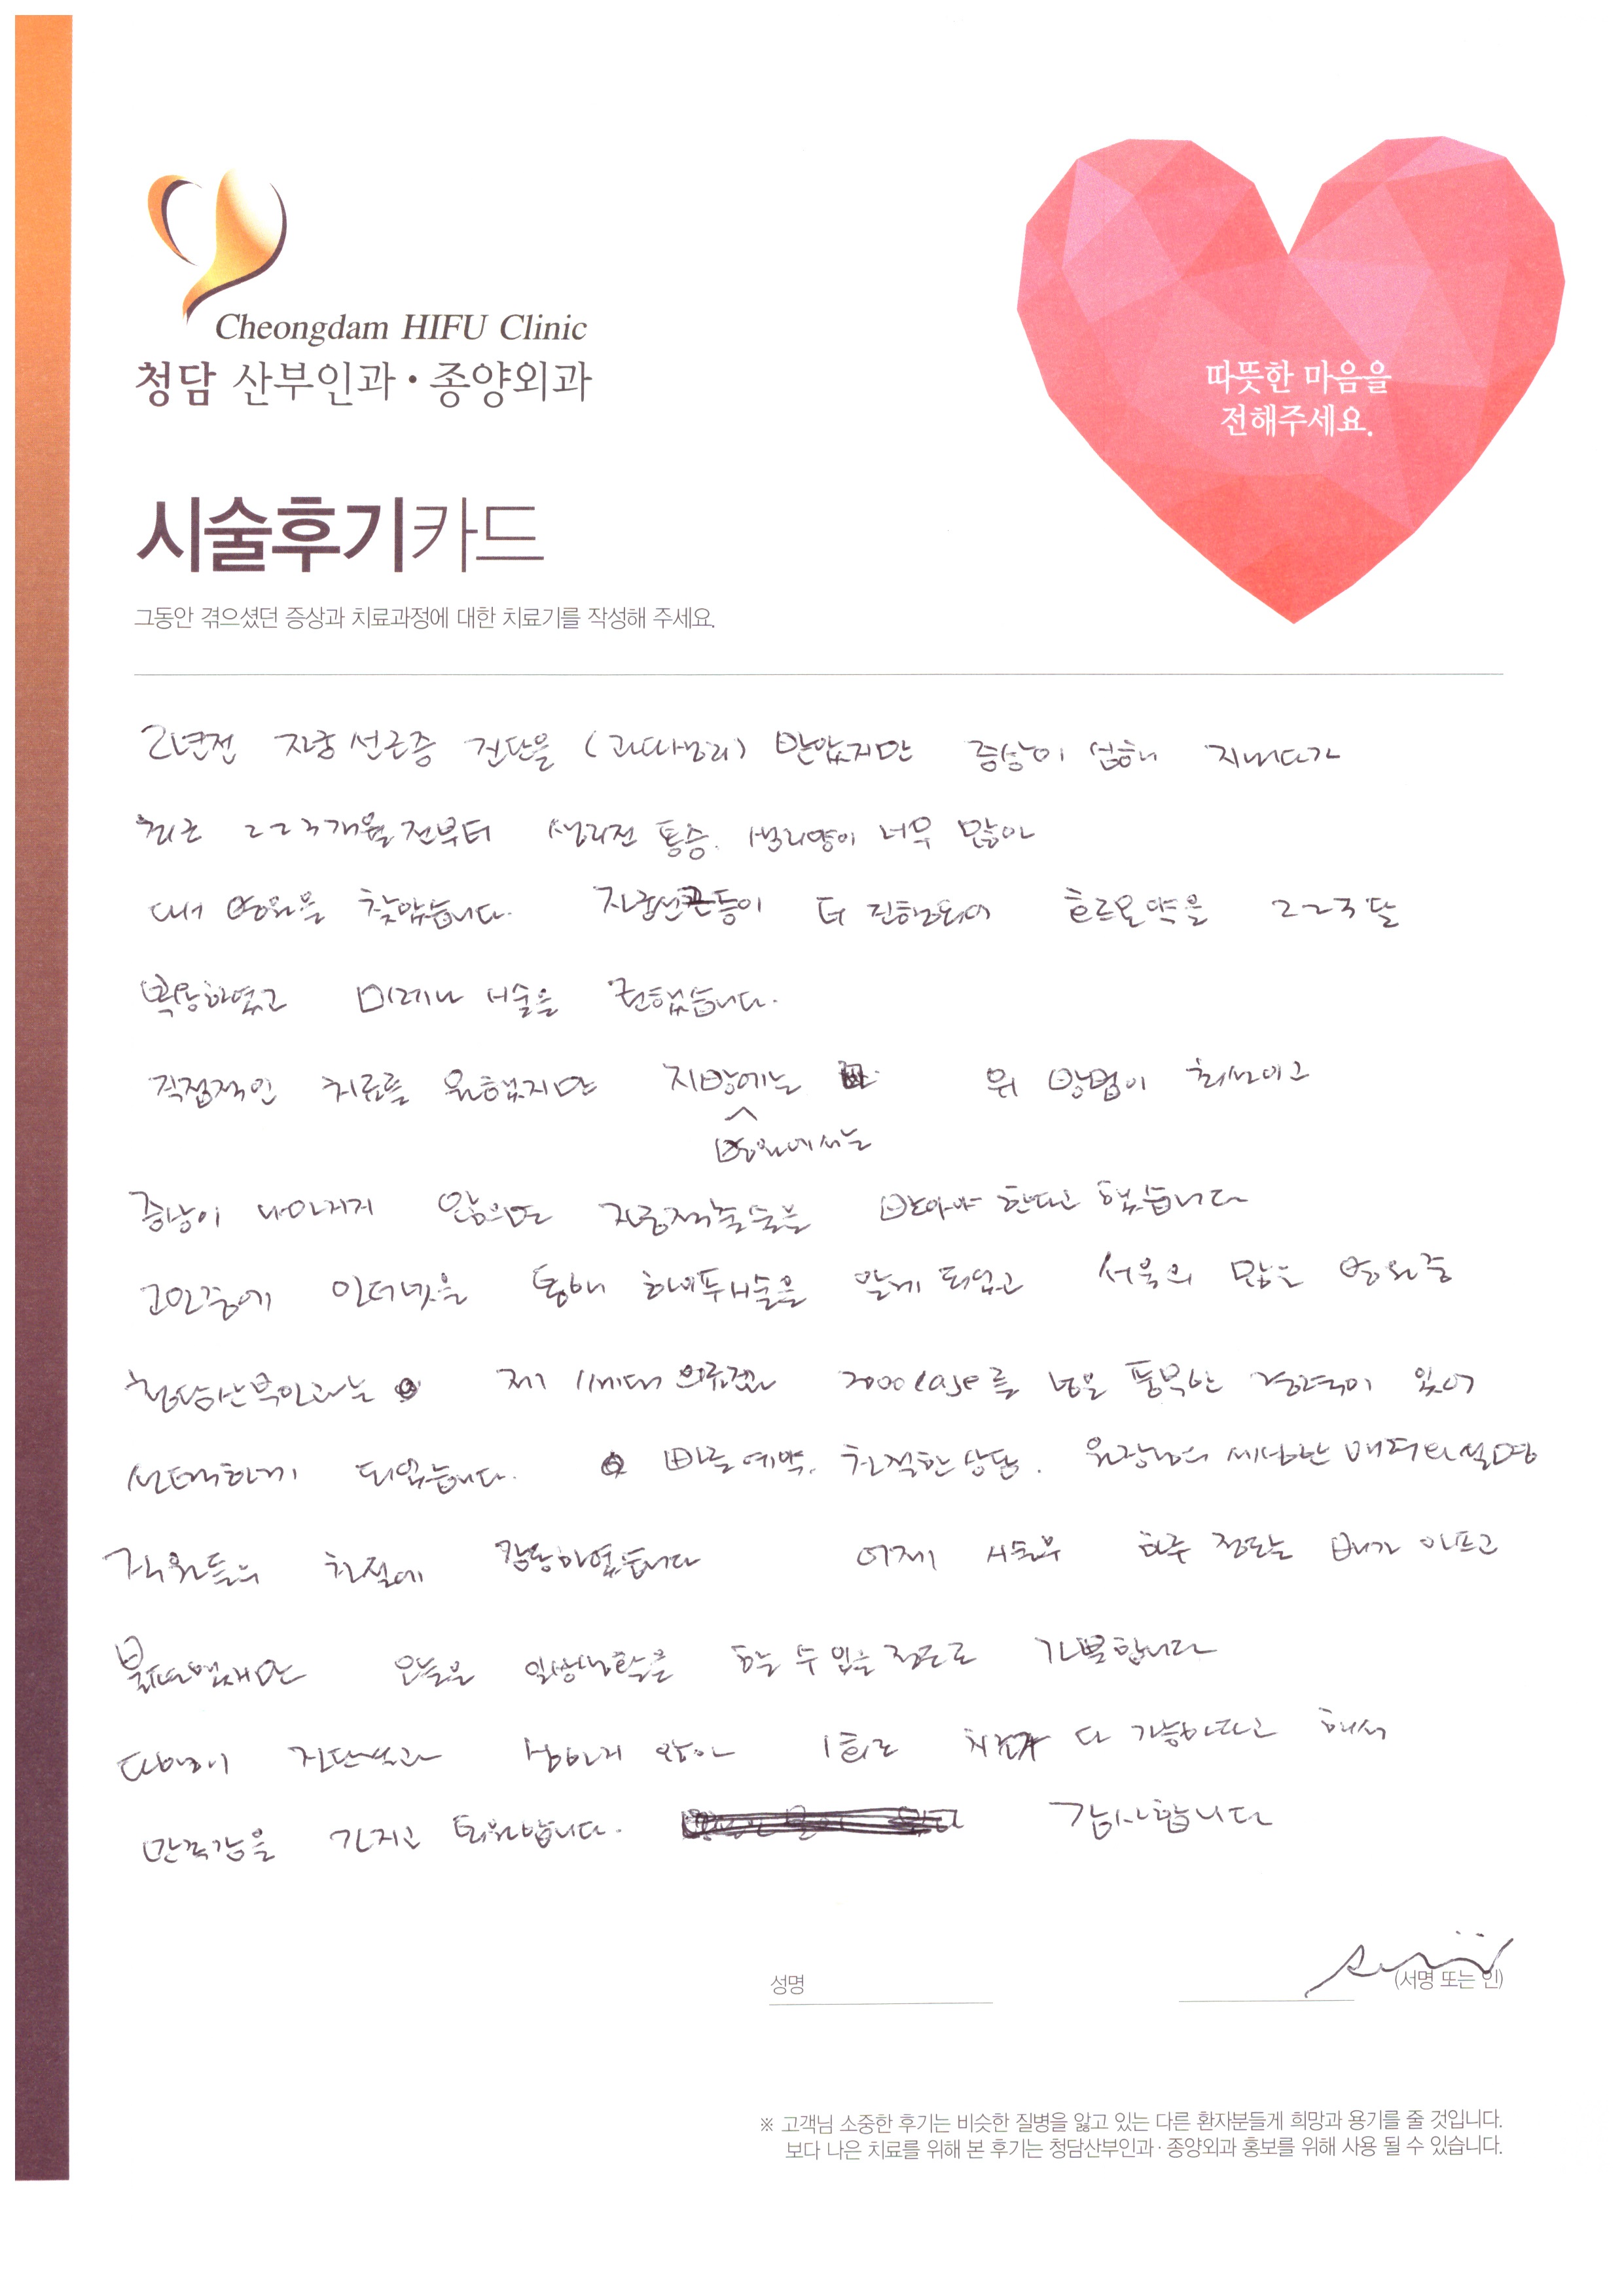 Cheongdam HIFU Clinic
청담 산부인과·종양외과
따뜻한 마음을
전해주세요.
시술후기카드
그동안 겪으셨던 증상과 치료과정에 대한 치료기를 작성해 주세요.
2년전 자궁선근증 진단을 (과다생리) 받았지만 증상이 심해 지내다가
최근 2~3개월전부터 생리전 통증. 생리양이 너무 많아
대서 병원을 찾았습니다. 자궁선근증이 더 진행되어 호르몬약을 2~3달
복용하였고 미레나 시술을 권했습니다.
직접적인 치료를 원했지만 지방에는 위 방법이 최선이고
병원에서는
증상이 나아지지 않으면 자궁적출술을 받아야 한다고 했습니다
고민중에 인터넷을 통해 하이푸시술을 알게 되었고 서울의 많은 병원중
청담산부인과는 제1세대 의료진과 2000case를 넘은 풍부한 경력이 있어
선택하게 되었습니다. 빠른예약. 친절한상담. 원장님의 세심한 설명
직원들의 친절에 감동하였습니다 어제 시술후 하루 정도는 배가 아프고
불편했지만 오늘은 일상생활을 할 수 있을 정도로 가뿐합니다
다행히 진단보다 심하지 않아 1회로 치료가 다 가능하다고 해서
만족감을 가지고 퇴원합니다. 감사합니다
성명
(서명 또는 인)
※ 고객님 소중한 후기는 비슷한 질병을 앓고 있는 다른 환자분들게 희망과 용기를 줄 것입니다.
보다 나은 치료를 위해 본 후기는 청담산부인과·종양외과 홍보를 위해 사용 될 수 있습니다.